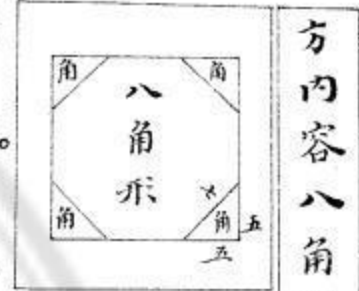 方内容八角
角
八角形
角
角
角
五
五